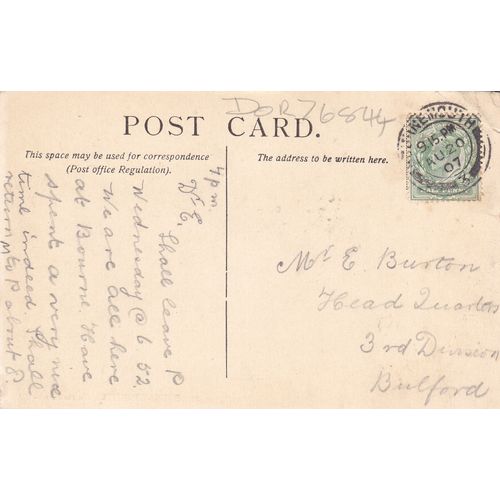 DOR76844
POST CARD.
This space may be used for correspondence
(Post office Regulation).
The address to be written here.
BOURNEMOUTH
9.15 PM
AU 20
07
4 pm.
Dr E.
Shall leave P
Wednesday @ 6 52.
We are all here
at Bourne. Have
spent a very nice
time indeed. Shall
return to P about 8.
Mr E. Burton
Head Quarters
3rd Division
Bulford